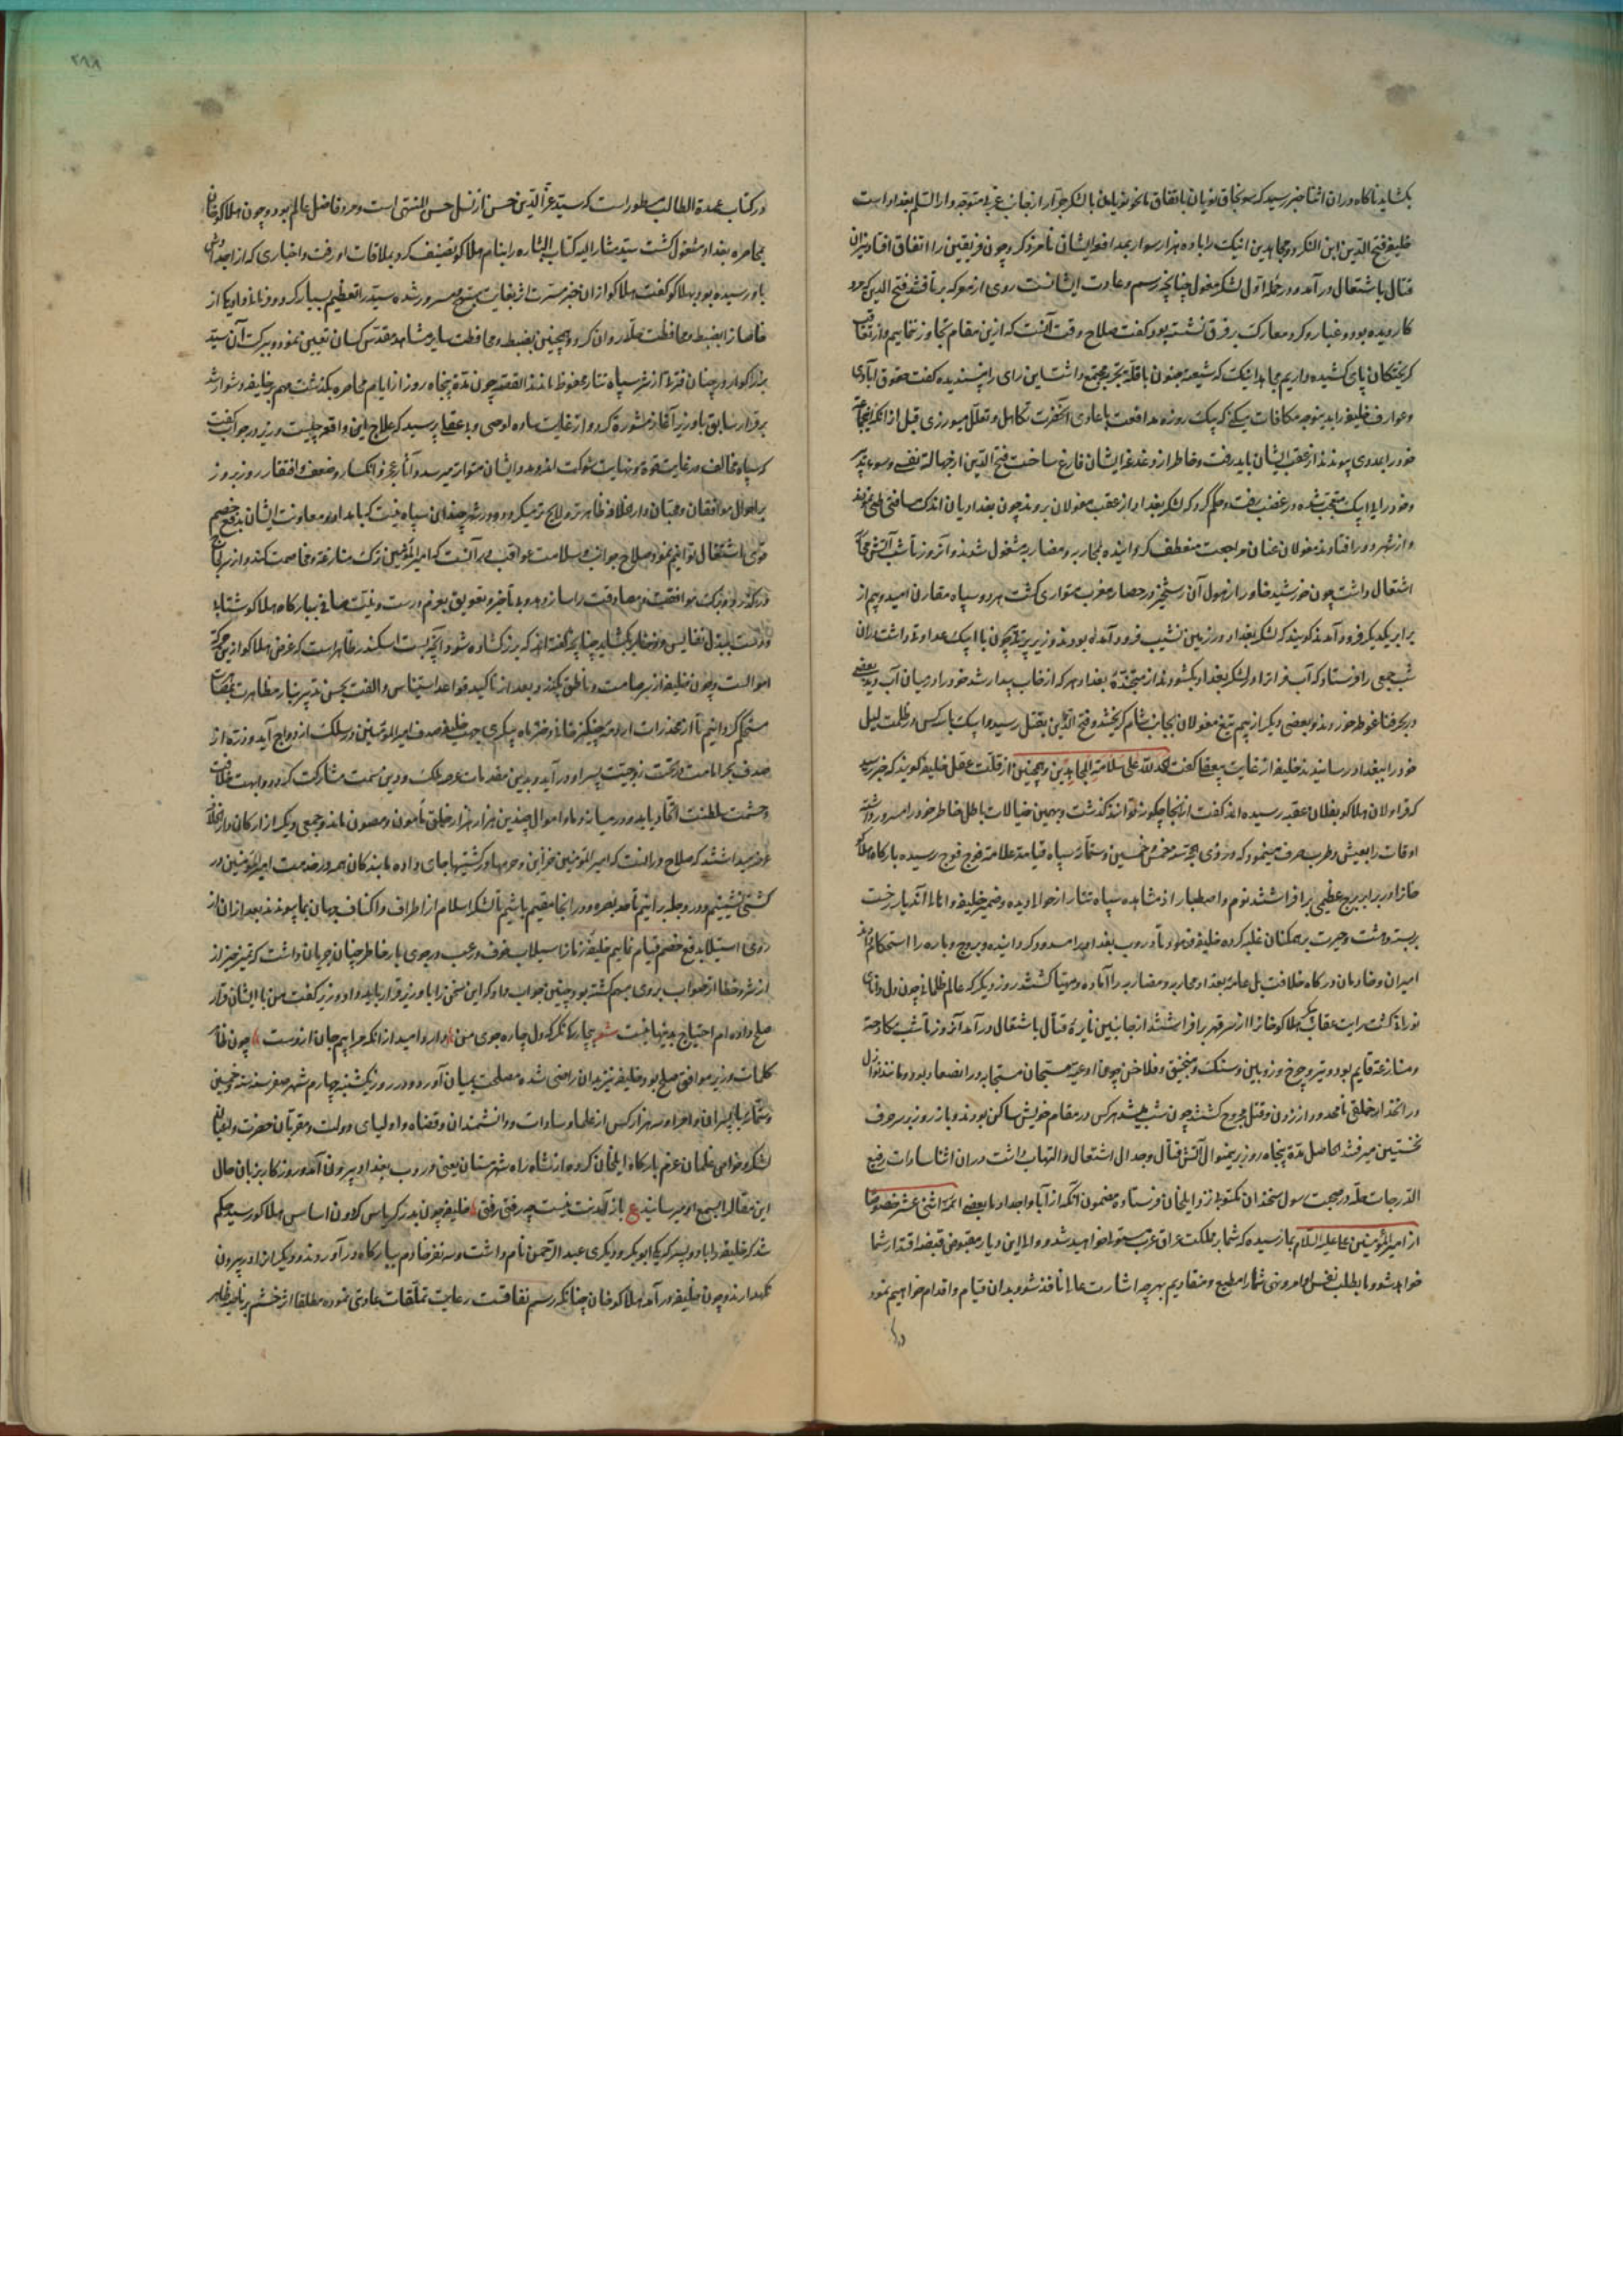 بکشاید ناکاه در ان اثنا خبر رسید که سونجاق نویان باتفاق بایجو نویان با لشکر جرار از جانب غربی متوجه دار السلم بغداد است
خلیفه فتح الدین ابن الکر و مجاهدین ایبک را با ده هزار سوار بمدافعه ایشان نامزد کرد و چون فریقین را اتفاق افتاد نیران
قتال باشتعال در آمد و در حمله اول لشکر مغول چنانچه رسم و عادت ایشانست روی از معرکه برتافتند فتح الدین که مرد
کار دیده بود و غبار و کرد معارک بر فرق نشسته بود کفت صلاح وقت آنست که ازین مقام تجاوز ننماییم و از تعاقب
کریختکان پای کشیده داریم مجاهد ایبک که شیعه جنون با قلت تجربه مجتمع داشت این رای را نپسندیده کفت حقوق ایادی
و عوارف خلیفه را بدینوجه مکافات میکنی که یک روزه مدافعت با اعادی آنحضرت تکاهل و تعلل میورزی قبل از انکه
خود را بعدوی پیوندند از عقب ایشان باید رفت و خاطر از دغدغه ایشان فارغ ساخت فتح الدین از جهالت نفس و سوء تدبیر
در غضب رفت و حکم کرد که لشکر بغداد از عقب مغولان بروند چون بغدادیان اندک مسافتی طی نمودند
و از شهر دور افتادند مغولان عنان مراجعت منعطف کردانیده بمحاربه و مضاربه مشغول شدند و آنروز تا شب آتش
اشتعال داشت چون خورشید خاور از هول آن رستخیز در حصار مغرب متواری کشت هر دو سپاه مقارن امید و بیم از
برابر یکدیکر فرود آمدند کویند که لشکر بغداد در زمین نشیب فرود آمده بودند و وزیر چون با ایبک عداوت داشت در ان
شب جمعی را فرستاد که آب فرات را بر لشکر بغداد بکشودند از متجنده بغداد هر که از خواب بیدار شد خود را در میان آب دید بعضی
در بحر فنا غوطه خوردند و بعضی دیکر از بیم تیغ مغولان بجانب شام کریختند و فتح الدین بقتل رسید و ایبک با سه کس در ظلمت لیل
خود را ببغداد رسانیدند خلیفه از غایت بیعقلی کفت الحمد لله علی سلامة المجاهدین و همچنین از قلت عقل خلیفه کویند که خبر رسید
که قراولان هلاکو بفلان عقبه رسیده اند کفت از انجا چکونه توانند کذشت و بهمین خیالات باطل خاطر خود را مسرور داشته
اوقات را بعیش و طرب صرف مینمود که در ذی الحجه سنه خمس و خمسین و ستمائه سپاه قیامت علامت فوج فوج رسیده بارکاه هلاکو
خان را در برابر برج عظیمی برافراشتند نوم و اصطبار از مشاهده سپاه تتار از حوالی دیده و ضمیر خلیفه و اهالی آندیار رخت
بربست و دهشت و حیرت بر همکنان غلبه کرده خلیفه فرمود تا دروب بغداد را مسدود کردانیده و بروج و باره را استحکام دادند
امیران و خادمان درکاه خلافت بل عامه بغداد محاربه و مضاربه را آماده و مهیا کشتند روز دیکر که عالم ظلمانی چون دل دانای
نورانی کشت رایت عقاب پیکر هلاکو خان را از سر قهر برافراشتند از جانبین نایره قتال باشتعال در آمد آنروز تا شب کار
و منازعه قایم بود و تیر و چرخ و زوبین و سنک و منجنیق و فلاخن چون ادعیه مستجاب در انصعاد بود و مانند نوازل
در انحدار خلقی نامحدود از زدن و قتل مجروح کشتند چون شب میشد هر کس در مقام خویش ساکن بودند و باز روز بر حرف
نخستین میرفتند الحاصل مدت پنجاه روز برینموال آتش قتال و جدال اشتعال و التهاب داشت در ان اثنا سادات رفیع
الدرجات حله در صحبت رسول سخندان مکتوبی نزد ایلخان فرستاده مضمون آنکه از آبا و اجداد ما بعضی ائمه اثنی عشر خصوصا
از امیر المؤمنین علی علیه السلام بما رسیده که شما بر مملکت عراق عرب مستولی خواهید شد و والی این دیار مقبوض قبضه اقتدار شما
خواهد شد و ما بطلب نفس اوامر و نهی شما را مطیع و منقادیم بهر چه اشارت عالی نافذ شود بدان قیام و اقدام خواهیم نمود
در
٢٨٨
در کتاب عمدة الطالب مسطور است که سید عز الدین حسن از نسل حسن المثنی است و مرد فاضل عالم بود و چون هلاکو خان
بمحاصره بغداد مشغول کشت سید مشار الیه کتاب البشاره را بنام هلاکو تصنیف کرد و بملاقات او رفت و اخباری که از اجداد
باو رسیده بود بهلاکو کفت هلاکو از ان خبر مسرت اثر بغایت مبتهج و مسرور شده سید را تعظیم بسیار کرد
را بضبط و محافظت حله روان کرد و همچنین بضبط و محافظت سایر مشاهد مقدس کسان تعیین نمود و ببرکت آن سید
بزرکوار در چنان فترتی از شر سپاه تتار محفوظ ماندند القصه چون مدت پنجاه روز از ایام محاصره بکذشت مهم بر خلیفه دشوار شد
بر قرار سابق با وزیر آغاز مشورت کرد و از غایت ساده لوحی و بی عقلی پرسید که علاج این واقعه چیست وزیر در جواب کفت
که سپاه مخالف در غایت قوة و نهایت شوکت اند و مدد ایشان متواتر میرسد و آثار عجز و انکسار و ضعف و افتقار روز بروز
بر احوال موافقان و محبان دار الخلافه ظاهرتر و لایح تر میکردد و در شهر چندان سپاه نیست که بامداد و معاونت ایشان بدفع خصم
قوی اشتغال توانیم نمود صلاح جوانب و سلامت عواقب در آنست که امیر المؤمنین ترک منازعه و مخاصمت کند و از سر
درکذرد و موافقت و مصادقت را ساز دهد و بی تاخیر و تعویق بعزم درست و نیت صافی ببارکاه هلاکو شتابد
و دست ببذل نفایس و ذخایر بکشاید چنانچه کفته اند که بزر کشاده شود آنچه بست اسکندر ظاهر است که غرض هلاکو ازین حرکت
اموالست و چون خلیفه از سر صامت و ناطق بکذرد و بعد از تاکید قواعد استیناس و الفت بحسن تدبیر بنا بر مظاهرت
مستحکم کردانیم تا از مخدرات اردوی چنکیز خانی دختر ماه پیکری جهت خلیفه صدف امیر المؤمنین در سلک ازدواج آید و دره از
صدف بحر امامت در تحت زوجیت پسر او در آید و بدین مقدمات عرصه ملک و دین سمت مشارکت کیرد و ابهت خلافت
و حشمت سلطنت اتحاد یابد و در میانه دماء و اموال چندین هزار هزار خلق مأمون و مصون ماند و جمعی دیکر از ارکان دار الخلافه
عرضه میداشتند که صلاح در انست که امیر المؤمنین خزاین و حرمها در کشتیها جای داده ما بندکان همه در خدمت امیر المؤمنین در
کشتی نشینیم و در دجله برانیم تا حد بصره و در انجا مقیم باشیم تا لشکر اسلام از اطراف و اکناف جهان بما پیوندند بعد از ان از
روی استیلا بدفع خصم قیام نماییم خلیفه زمان را سیلاب خوف و رعب در جوی بار خاطر چنان جریان داشت که تمیز خیر از
از شر و خطا از صواب بر وی مبهم کشته بود چنین جواب داد که این سخن را با وزیر قرار باید داد و وزیر کفت من با ایشان قرار
صلح داده ام احتیاج بدینها نیست شعر بیچارکی نکر که دل چاره جوی من دارد امید از انکه مرا بیم جان ازوست چون
کلمات وزیر موافق صلح بود خلیفه نیز بدان راضی شده مصلحت بمیان آورد و در روز یکشنبه چهارم شهر صفر سنه ست و خمسین
و ستمائه با پسران و اقربا و سه هزار کس از علما و سادات و دانشمندان و قضاة و اولیای دولت و مقربان حضرت و اعیان
لشکر و خواص غلمان عزم بارکاه ایلخان کرده از شاه راه شهرستان یعنی دروب بغداد بیرون آمد و روزکار بزبان حال
این مقال را بسمع او میرسانید ع باز آمدنت نیست چو رفتی رفتی خلیفه چون بدر کریاس کردون اساس هلاکو رسید حکم
شد که خلیفه را با دو پسر که یکی ابو بکر و دیکری عبد الرحمن نام داشت و سه نفر خادم ببارکاه در آوردند و دیکران را در بیرون
نکهدارند و چون خلیفه در آمد هلاکو خان چنانکه رسم نفاقست رعایت تملقات عادتی نموده مطلقا اثر خشم بر ناصیه ظاهر